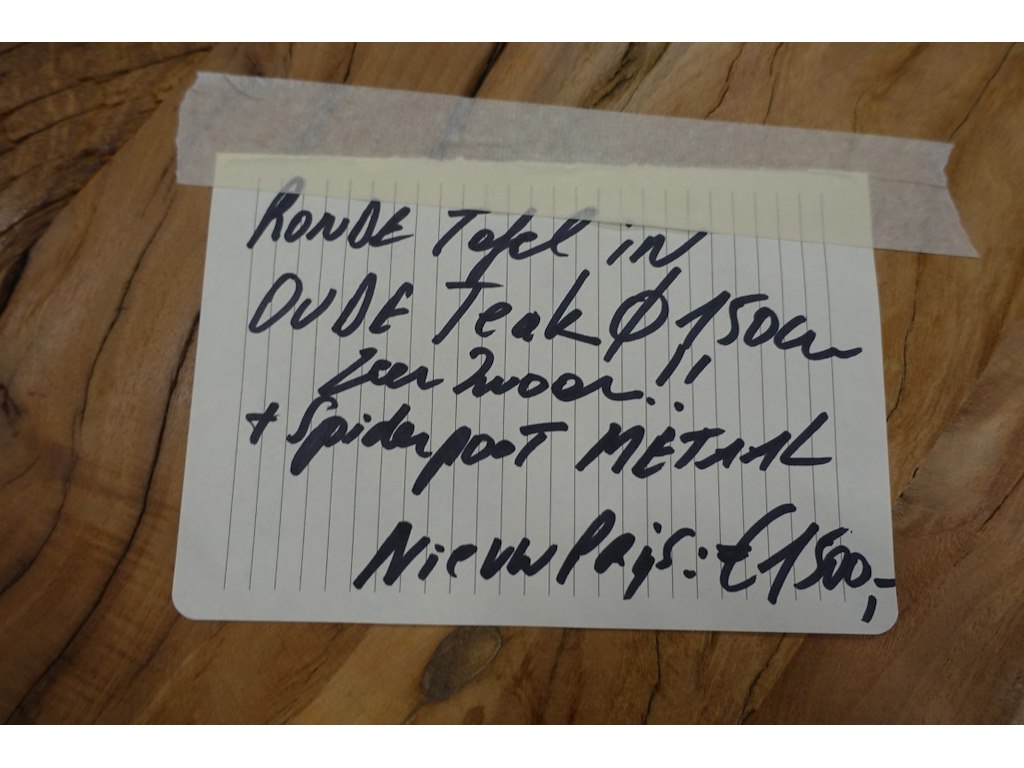 RONDE Tafel iN
OUDE Teak Ø 150cm
zeer zwaar!!
+ Spiderpoot METAAL
Nieuw Prijs: €1500,-